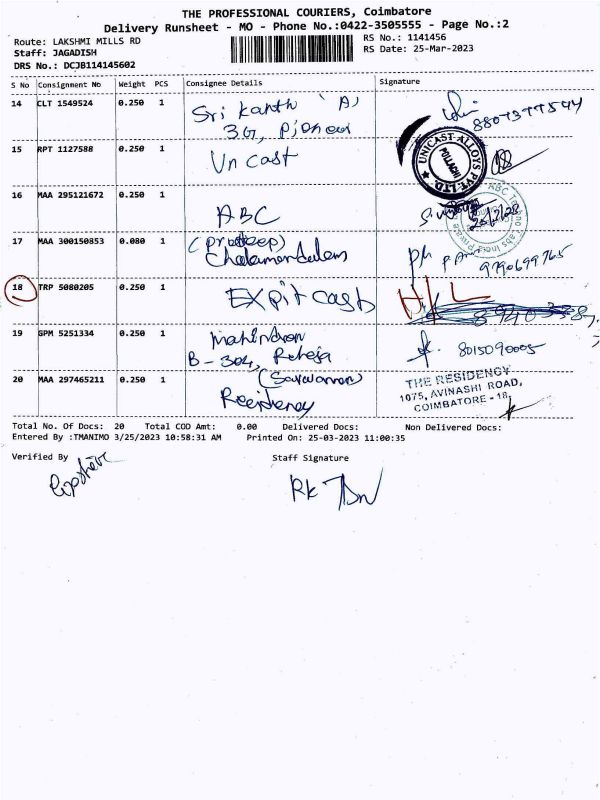 THE PROFESSIONAL COURIERS, Coimbatore
Delivery Runsheet - MO - Phone No.:0422-3505555 - Page No.:2
Route: LAKSHMI MILLS RD
RS No.: 1141456
Staff: JAGADISH
RS Date: 25-Mar-2023
DRS No.: DCJB114145602
S No Consignment No Weight PCS Consignee Details Signature
14 CLT 1549524 0.250 1 Srikanth (A)
3G, Pioneer
15 RPT 1127588 0.250 1 Unicast
UNICAST ALLOYS PVT. LTD.
POLLACHI
16 MAA 295121672 0.250 1 ABC
17 MAA 300150853 0.080 1 (Pradeep)
Cholamandalam
9790699765
18 TRP 5080205 0.250 1 Expit cast
19 GPM 5251334 0.250 1 Mahindran
B-304, Raheja
8015090005
20 MAA 297465211 0.250 1 (Saravanan)
Residency
THE RESIDENCY
1075, AVINASHI ROAD,
COIMBATORE - 18.
Total No. Of Docs: 20 Total COD Amt: 0.00 Delivered Docs: Non Delivered Docs:
Entered By :TMANIMO 3/25/2023 10:58:31 AM Printed On: 25-03-2023 11:00:35
Verified By Staff Signature